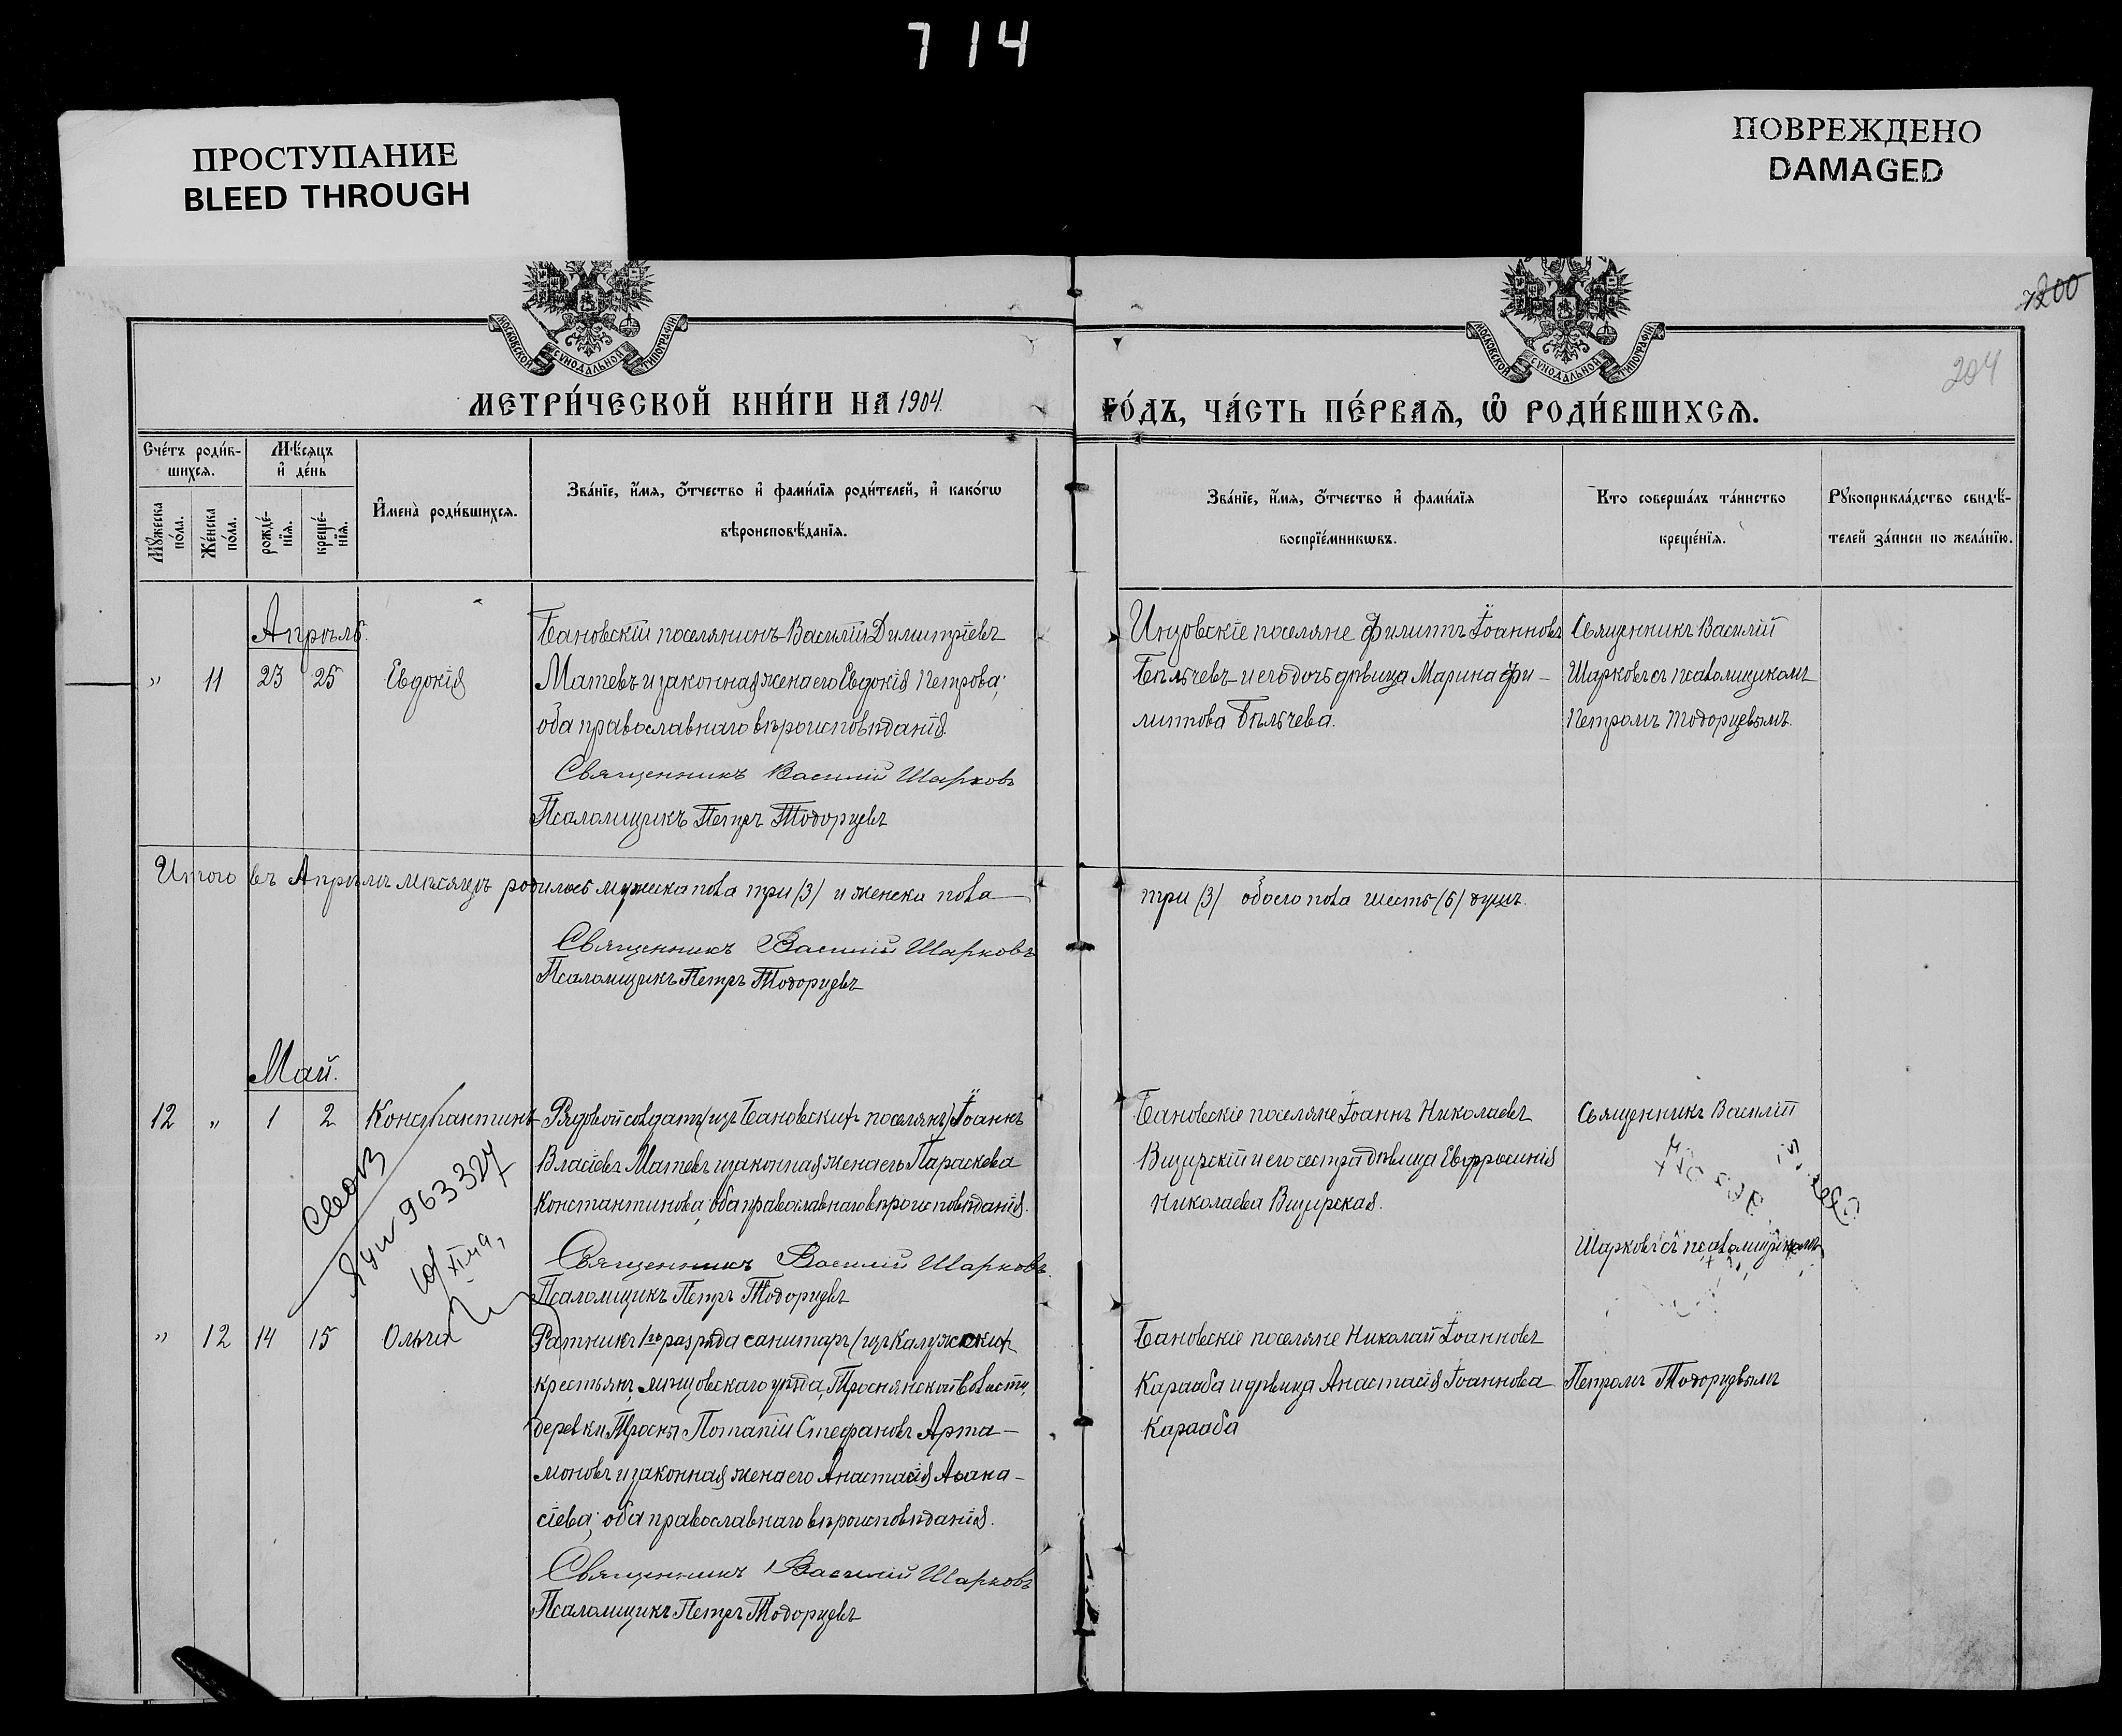 714
ПРОСТУПАНИЕ
BLEED THROUGH
ПОВРЕЖДЕНО
DAMAGED
200
204
МОСКОВСКОЙ СѴНОДАЛЬНОЙ ТИПОГРАФІИ
МОСКОВСКОЙ СѴНОДАЛЬНОЙ ТИПОГРАФІИ
МЕТРИ́ЧЕСКОЙ КНИ́ГИ НА 1904.
ГО́ДЪ, ЧА́СТЬ ПЕ́РВАѦ, Ѽ РОДИ́ВШИХСѦ.
Сче́тъ роди́в-
шихсѧ.
Мѣ́сяцъ
и҆ де́нь
Мꙋ́жеска по́ла.
Же́нска по́ла.
рожде́-нїѧ.
креще́-нїѧ.
И҆мена̀ роди́вшихсѧ.
Зва́нїе, и҆́мѧ, ѻ҆́тчество и҆ фами́лїѧ роди́телей, и҆ како́гѡ
вѣроисповѣ́данїѧ.
Зва́нїе, и҆́мѧ, ѻ҆́тчество и҆ фами́лїѧ
воспрїе́мникѡвъ.
Кто соверша́лъ та́инство
креще́нїѧ.
Рꙋкоприкла́дство свидѣ́-
телей за́писи по жела́нїю.
Апрѣль.
" 11 23 25 Евдокія
Бановскій поселянинъ Василій Димитріевъ
Матевъ и законная жена его Евдокія Петрова;
оба православнаго вѣроисповѣданія.
Священникъ Василій Шарковъ
Псаломщикъ Петръ Тодорцевъ
Инзовскіе поселяне Филиппъ Іоанновъ
Бѣльчевъ и его дочь дѣвица Марина Фи-
липпова Бѣльчева.
Священникъ Василій
Шарковъ съ псаломщикомъ
Петромъ Тодорцевымъ.
Итого въ Апрѣлѣ мѣсяцѣ родилось мужеска пола три (3) и женска пола
три (3) обоего пола шесть (6) душъ.
Священникъ Василій Шарковъ
Псаломщикъ Петръ Тодорцевъ
Май.
12 " 1 2 Константинъ
Рядовой солдатъ (изъ Бановскихъ поселянъ) Іоаннъ
Власіевъ Матевъ и законная жена его Параскева
Константинова; оба православнаго вѣроисповѣданія.
Священникъ Василій Шарковъ.
Псаломщикъ Петръ Тодорцевъ
963327
Бановскіе поселяне Іоаннъ Николаевъ
Визирскій и его сестра дѣвица Евфросинія
Николаева Визирская.
Священникъ Василій
Шарковъ съ псаломщикомъ
" 12 14 15 Ольга
Ратникъ 1го разряда санитаръ (изъ Калужскихъ
крестьянъ, Мещовскаго уѣзда, Троснянской волости,
деревни Тросны Потапій Стефановъ Арта-
моновъ и законная жена его Анастасія Аѳана-
сіева; оба православнаго вѣроисповѣданія.
Священникъ Василій Шарковъ
Псаломщикъ Петръ Тодорцевъ
Бановскіе поселяне Николай Іоанновъ
Караaба и дѣвица Анастасія Іоаннова
Карааба
Петромъ Тодорцевымъ